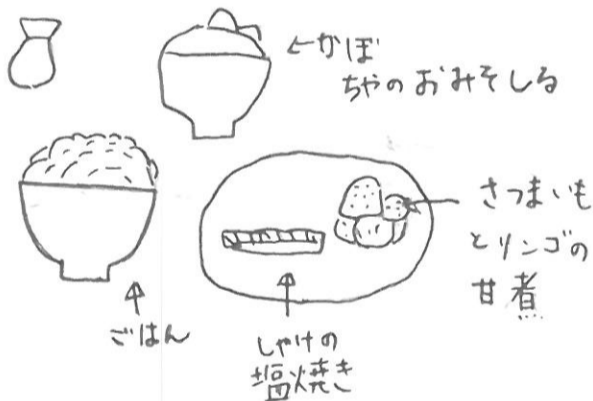 ←かぼ
ちゃのおみそしる
さつまいも
とリンゴの
甘煮
ごはん
しゃけの
塩焼き